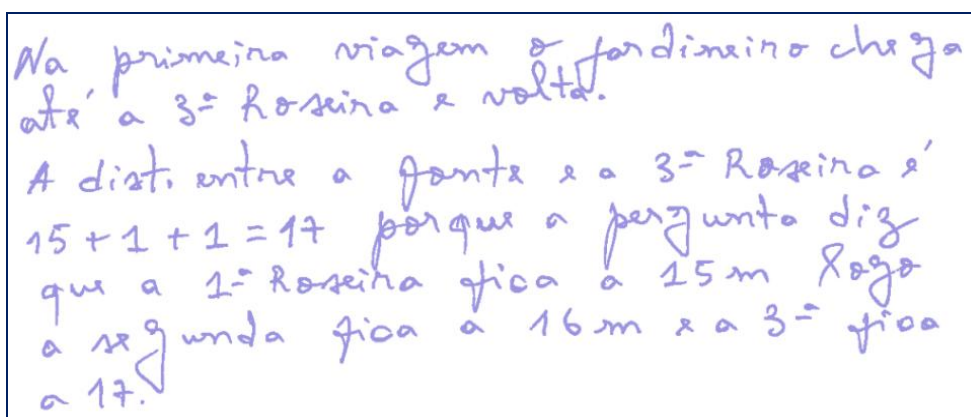 Na primeira viagem o jardineiro chega
até a 3ª Roseira e volta.
A dist. entre a fonte e a 3ª Roseira é
15 + 1 + 1 = 17 porque a pergunta diz
que a 1ª Roseira fica a 15 m logo
a segunda fica a 16 m e a 3ª fica
a 17.